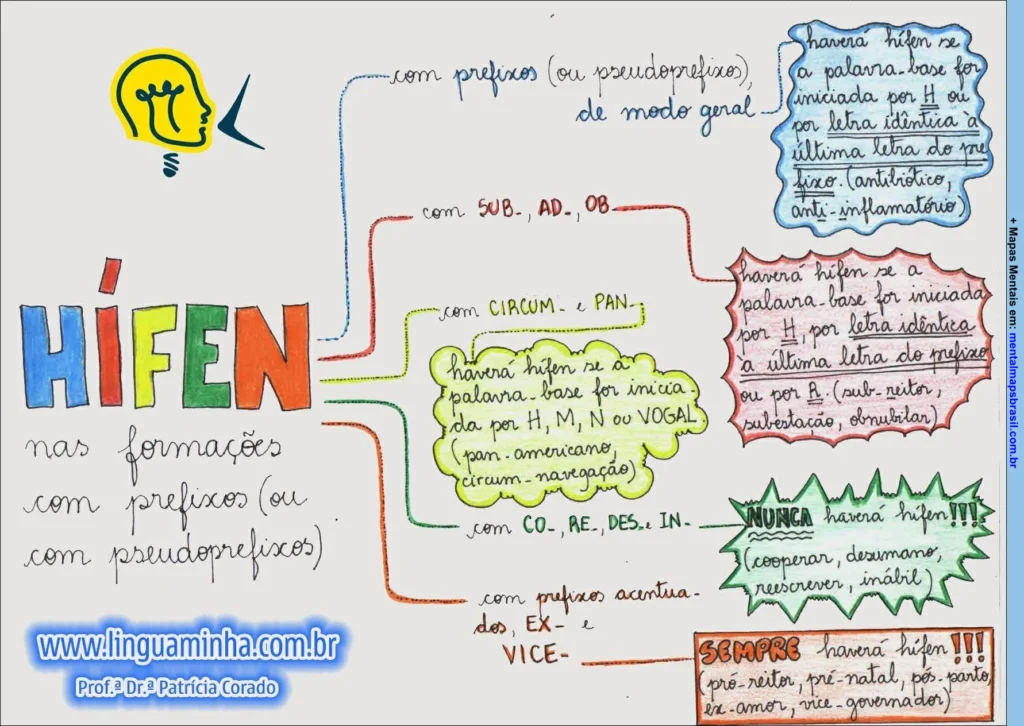 HÍFEN
nas formações
com prefixos (ou
com pseudoprefixos)
com prefixos (ou pseudoprefixos),
de modo geral
haverá hífen se
a palavra-base for
iniciada por H ou
por letra idêntica à
última letra do pre
fixo. (antibiótico,
anti-inflamatório)
com SUB-, AD-, OB-
haverá hífen se a
palavra-base for iniciada
por H, por letra idêntica
à última letra do prefixo
ou por R. (sub-reitor,
subestação, obnubilar)
com CIRCUM- e PAN-
haverá hífen se a
palavra-base for inicia-
da por H, M, N ou VOGAL.
(pan-americano,
circum-navegação)
com CO-, RE-, DES- e IN-
NUNCA haverá hífen!!!
(cooperar, desumano,
reescrever, inábil)
com prefixos acentua-
dos, EX- e
VICE-
SEMPRE haverá hífen!!!
(pró-reitor, pré-natal, pós-parto,
ex-amor, vice-governador)
www.linguaminha.com.br
Prof.ª Dr.ª Patrícia Corado
+ Mapas Mentais em: mentalmapsbrasil.com.br